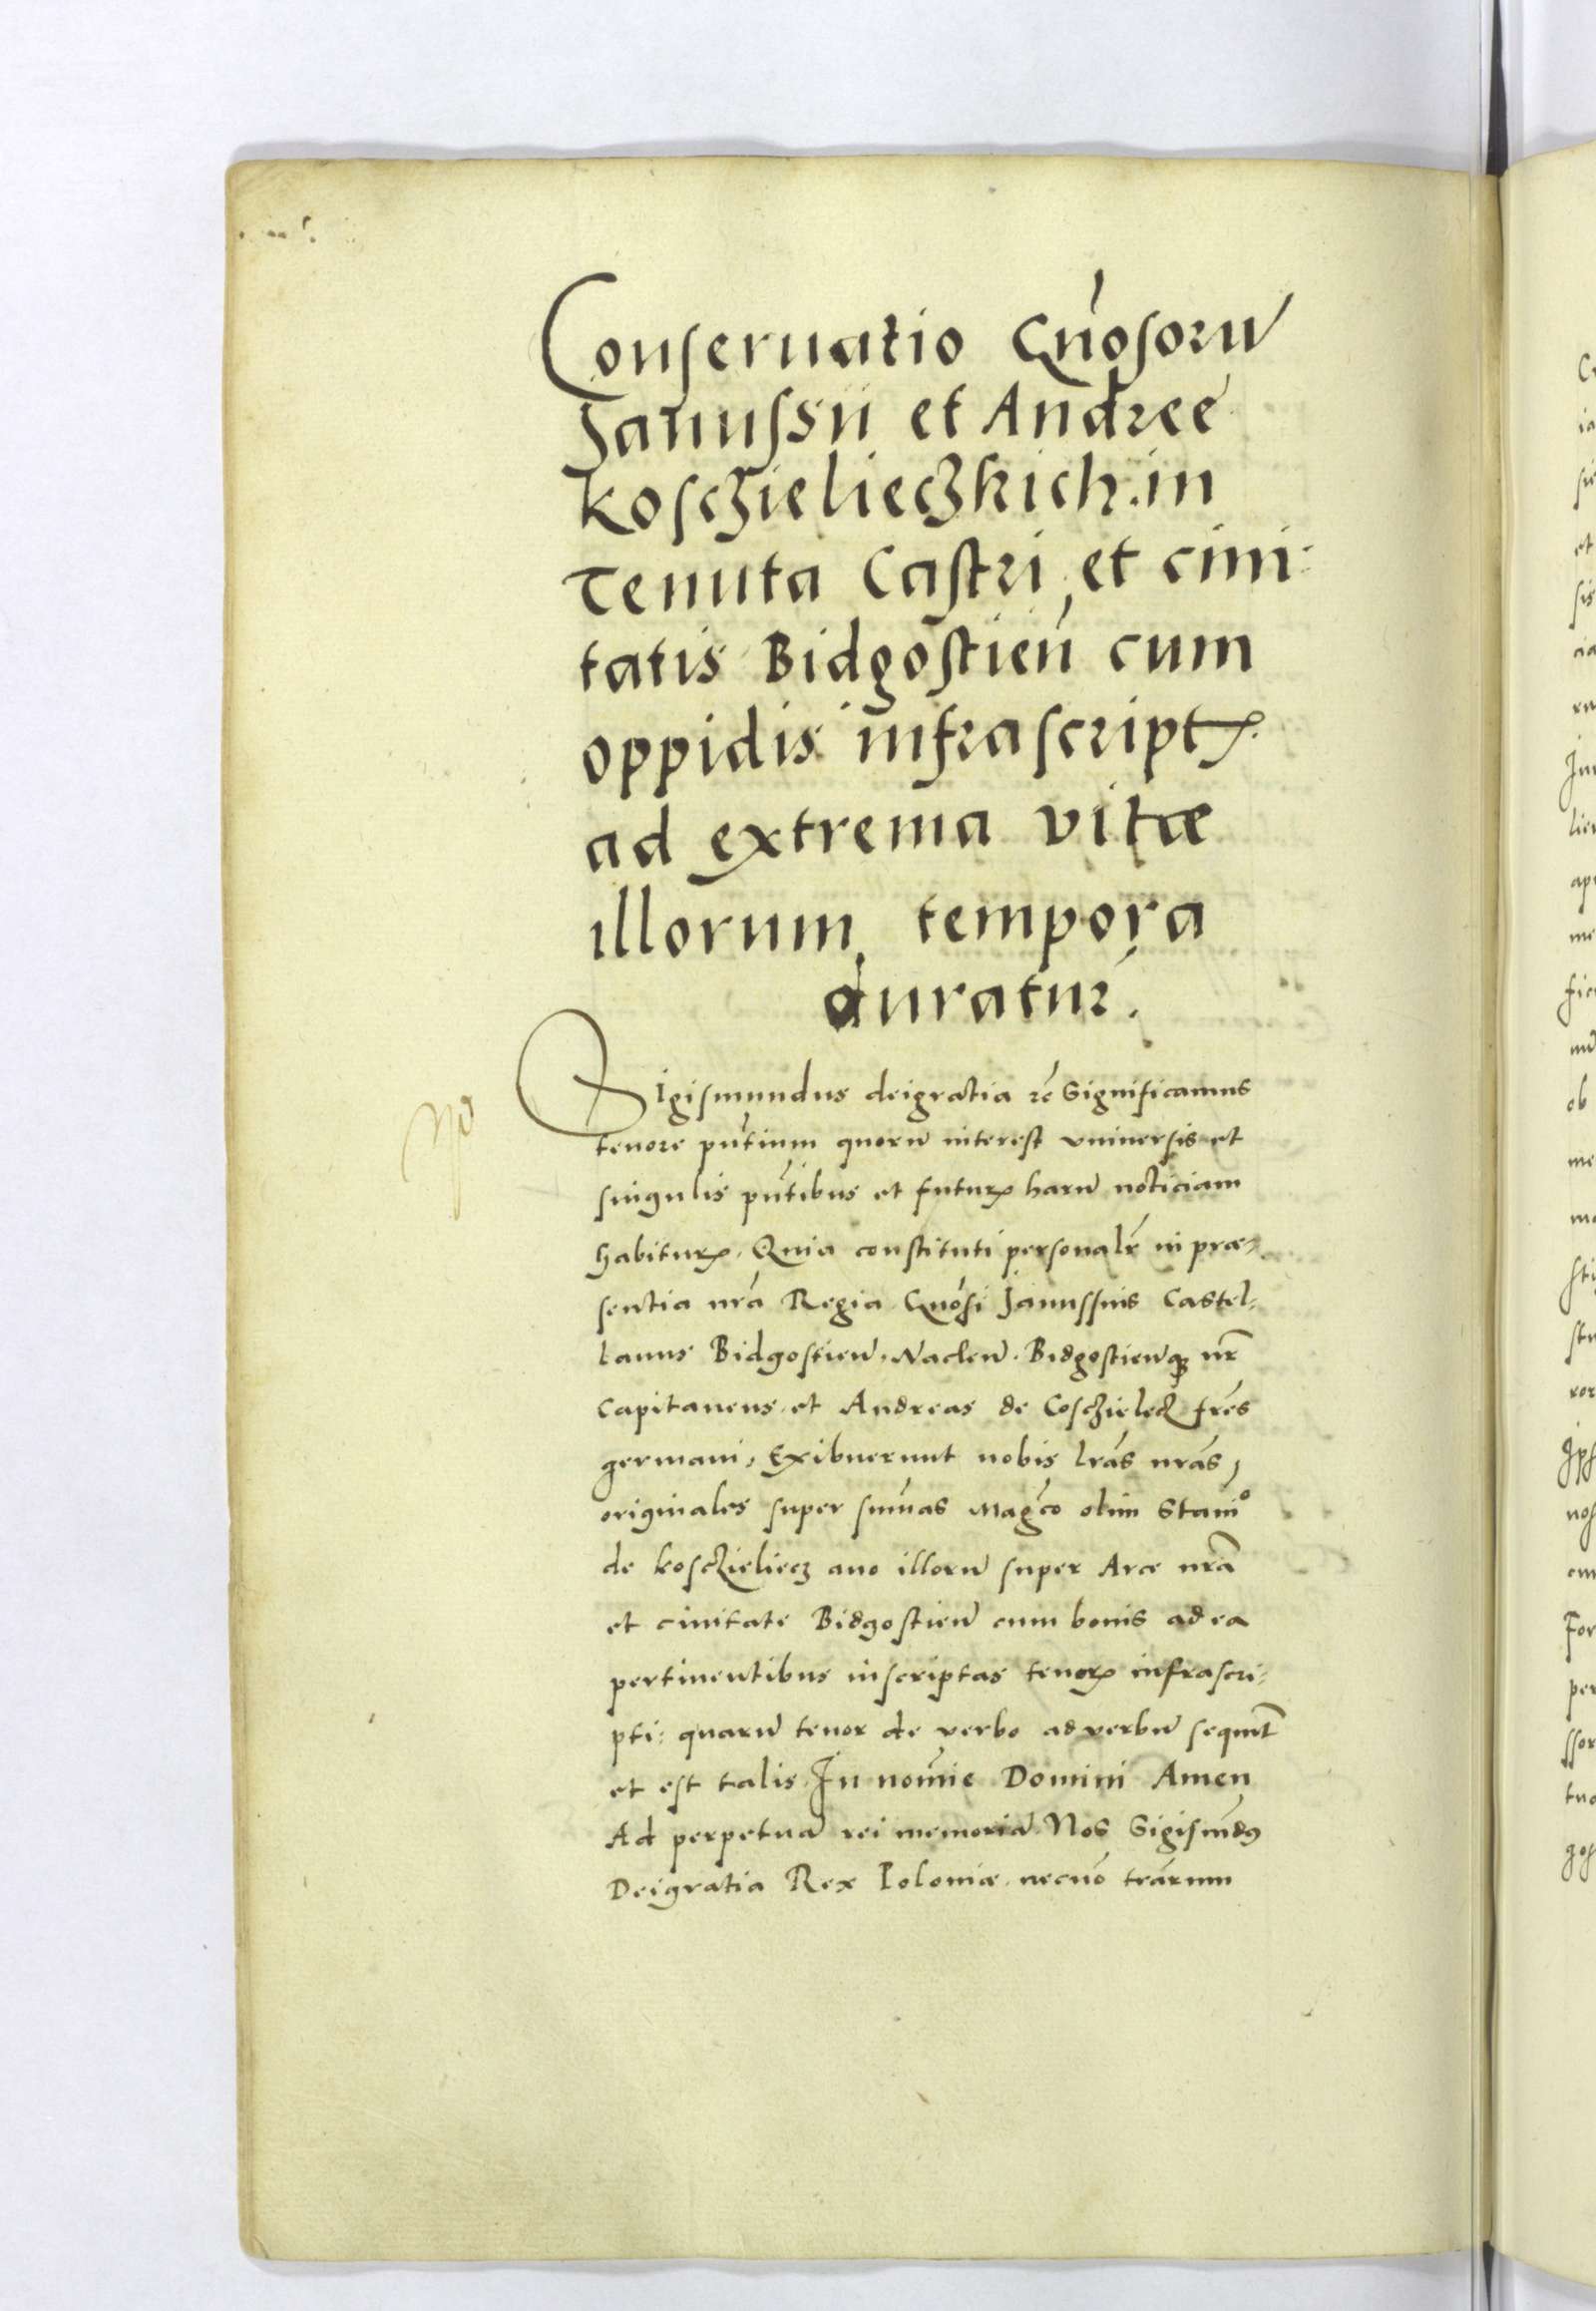 Conseruatio Gn̄osorū
Janussii et Andree
Kosczielieczkich in
Tenuta Castri et ciui-
tatis Bidgostien̄ cum
oppidis infrascriptꝭ
ad extrema vitæ
illorum tempora
duratur̄.
Sigismundus deigratia rc̄ Significamus
tenore pn̄tium quorū interest vniuersis et
singulis pn̄tibus et futurꝭ harū noticiam
habiturꝭ. Quia constituti personalr̄ in præ-
sentia nr̄a Regia Gn̄osi Janussius Castel-
lanus Bidgostien̄. Naclen̄. Bidgostien̄qꝫ nr̄
Capitaneus et Andreas de Cosczielecz fr̄es
germani, Exibuerunt nobis lr̄as nr̄as,
originales super sum̄as Magco olim Stanio
de kosczieliecz auo illorū super Arce nr̄a
et ciuitate Bidgostien̄ cum bonis ad ea
pertinentibus inscriptas tenorꝭ infrascri-
pti: quarū tenor de verbo ad verbū sequit̄
et est talis. In nom̄ie Domini Amen
Ad perpetuā rei memoriā. Nos Sigism̄dꝰ
Deigratia Rex Poloniæ. necnō trārum